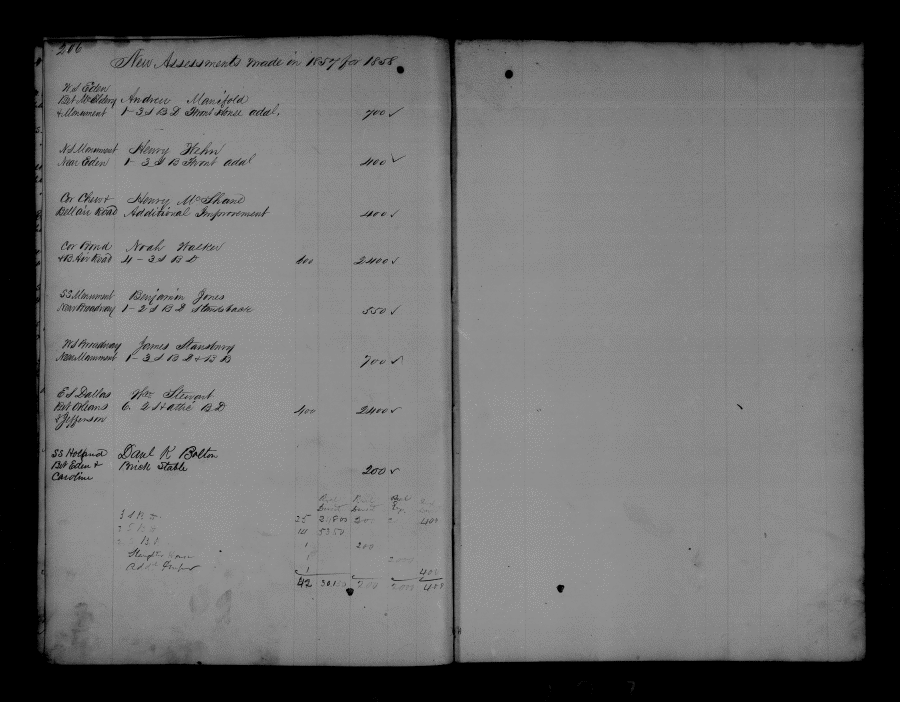 206
New Assessments made in 1857 for 1858
W S Eden
Bet McElderry Andrew Manifold
& Monument 1 - 3 S B D Front House addl. 700 ✓
N S Monument Henry Hehn
Near Eden 1 - 3 S B Front addl 400 ✓
Cor Chew & Henry McShane
Bellair Road Additional Improvement 400 ✓
Cor Bond Noah Walker
& B Air Road 4 - 3 S B D 600 2400 ✓
S S Monument Benjamin Jones
Near Broadway 1 - 2 S B D Stands back 550 ✓
W S Broadway James Stansbury
Near Monument 1 - 3 S B D & B B 700 ✓
E S Dallas Wm Stewart
Bet Orleans 6. 2 S & attic B D 400 2400 ✓
& Jefferson
S S Danl K Bolton
Bet Eden & Brick Stable 200 ✓
Caroline
3 S B D 25 400
14 5350
1 200
1 2000
Add Improv 1 400
42 200 2000 400